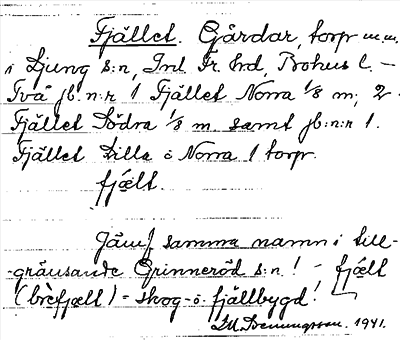 Fjället. Gårdar, torp m.m.
i Ljung s:n, Inl. Fr. hrd, Bohus l. –
Två jb. n:r 1 Fjället Norra 1/8 m; 2
Fjället Södra 1/8 m. samt jb:n:r 1.
Fjället Lilla o Norra 1 torp.
fjælt.
Jämf samma namn i till-
-gränsande Grinneröd s:n! – fjælt
(brèfjælt) = skog- o. fjällbygd!
1941.